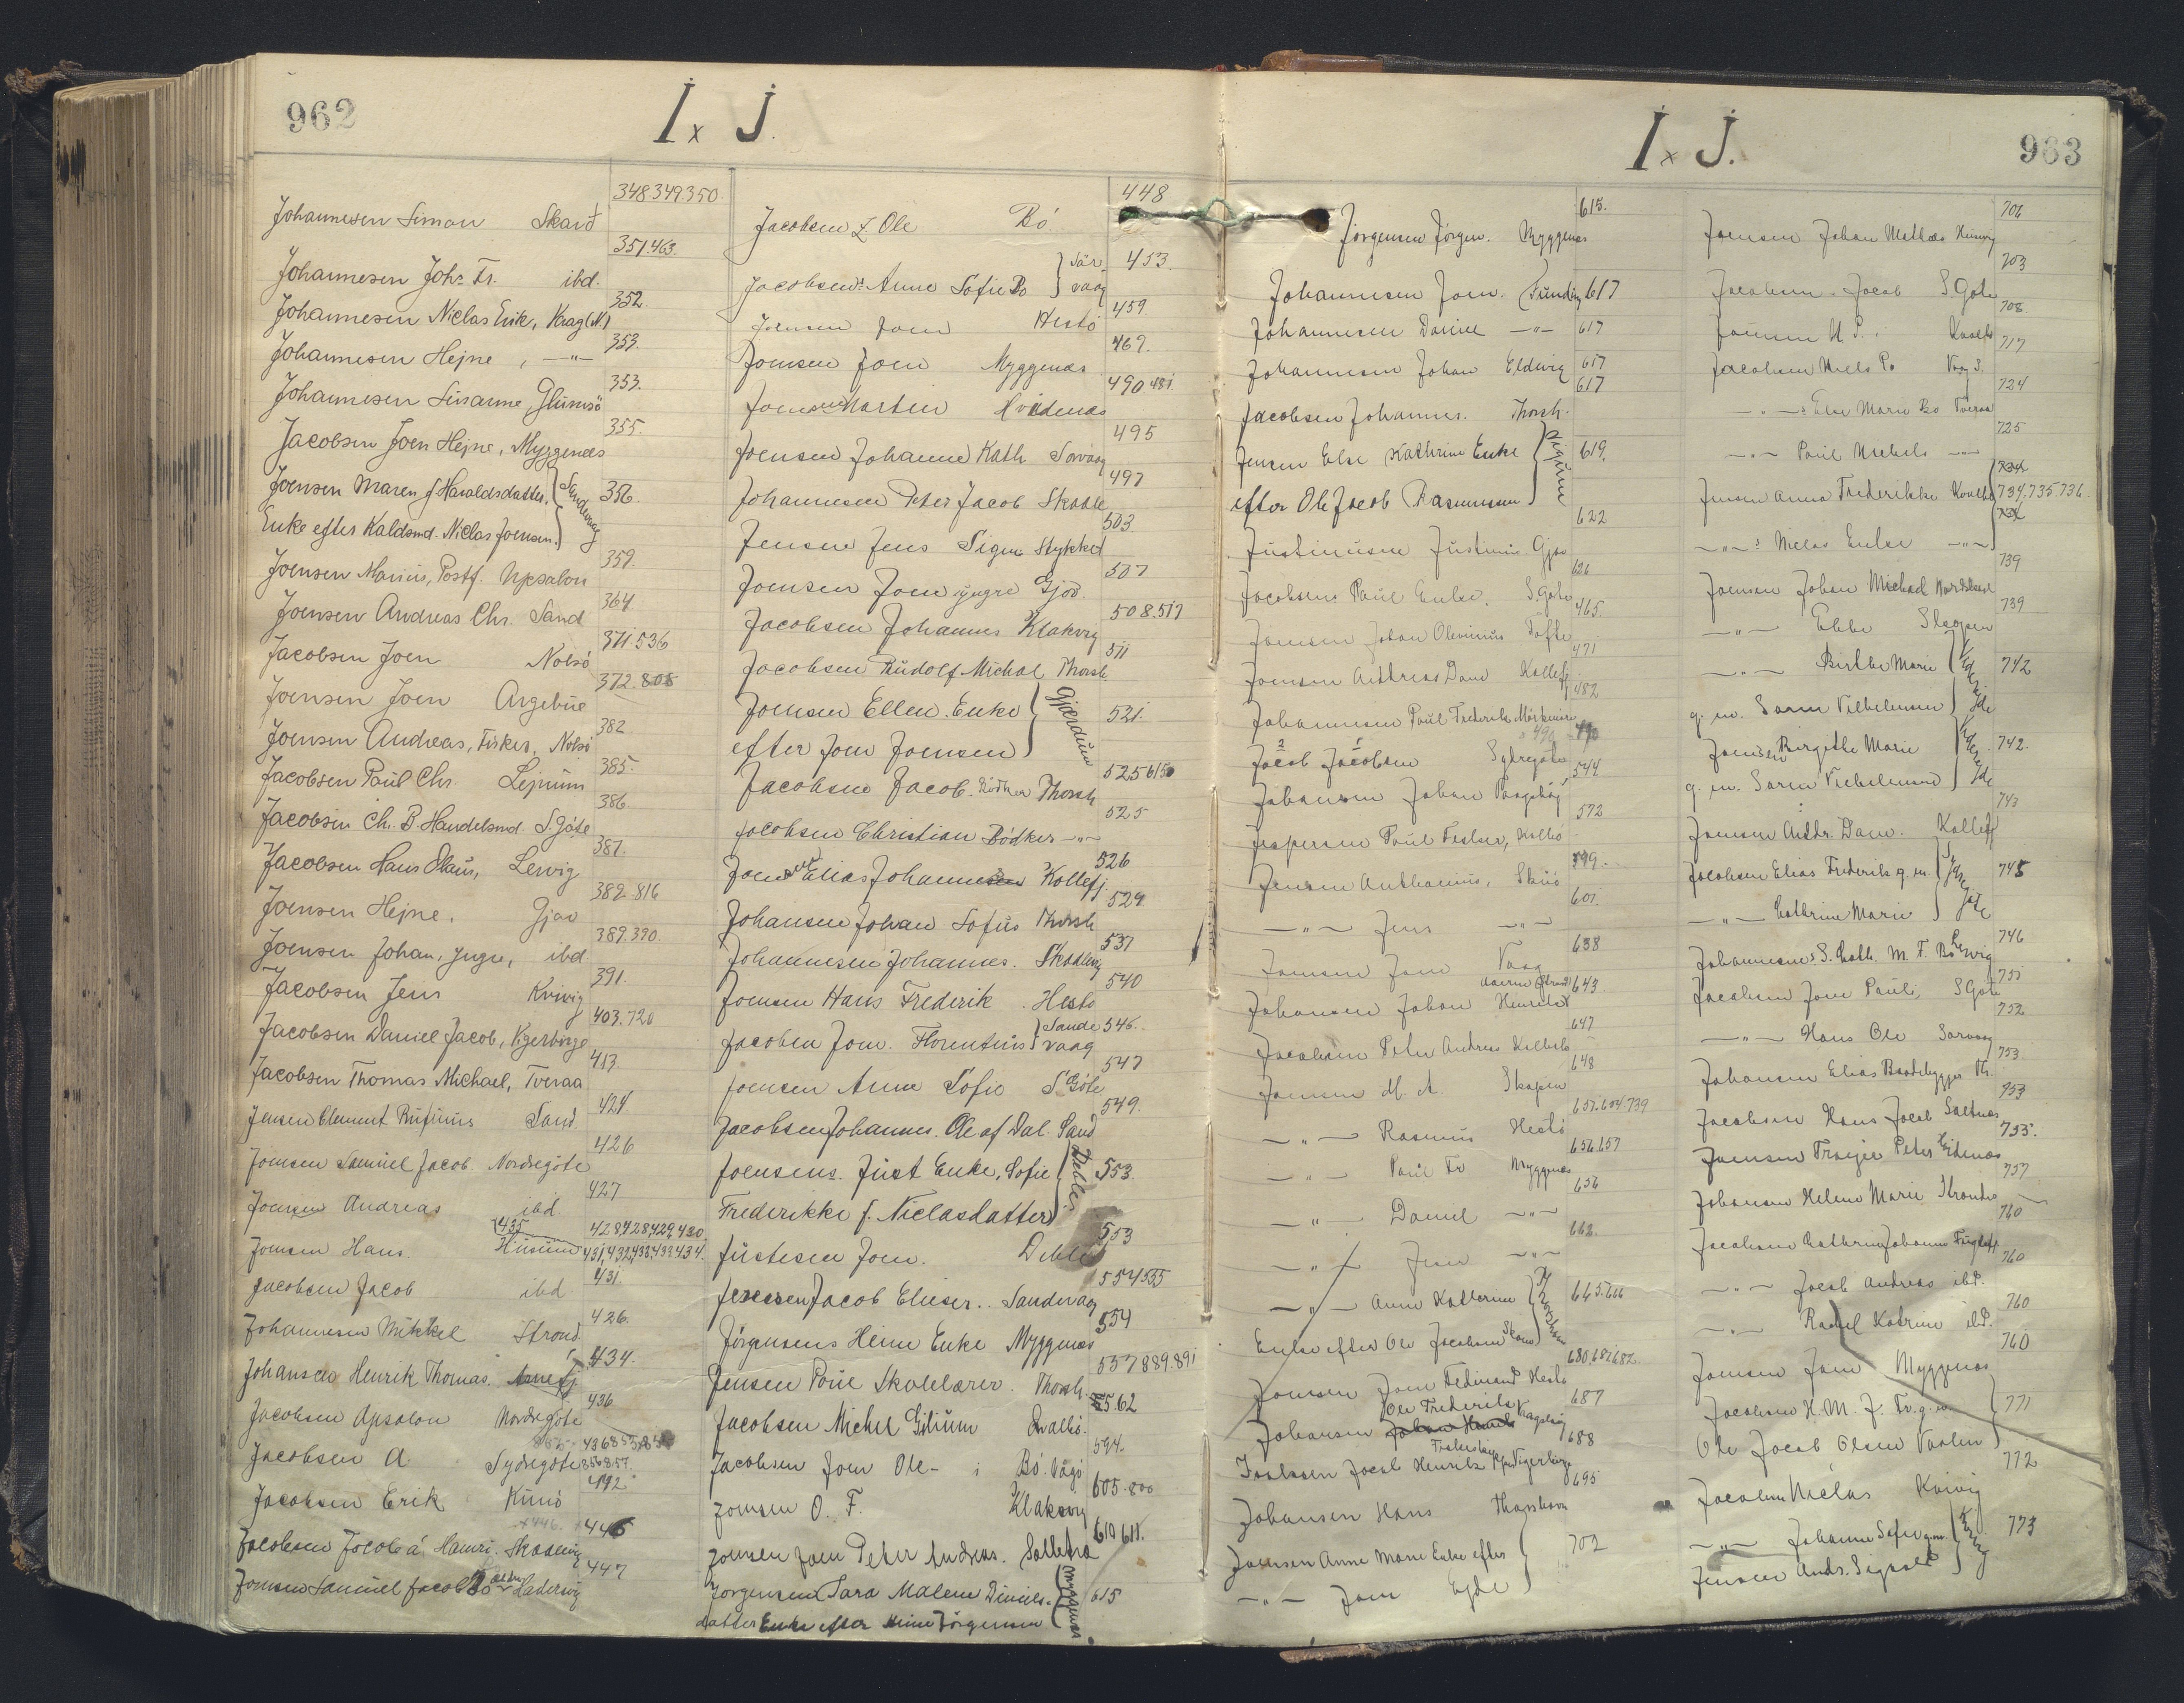 962
I x J.
348 349.350.
Johannesen Simon Skard
351.463.
Johannesen Johs Fr. ibd.
352.
Johannesen Niclas Erik, Krag (N.)
353.
Johannesen Hejne, —"—
353.
Johannesen Susanne, Glumsö
355.
Jacobsen Joen Hejne, Myggenæs
Joensen Maren f. Haraldsdatter, Sandevaag 356.
Enke efter Kaldsmd. Niclas Joensen.
359.
Joensen Marius, Postf. Upsalon
364.
Joensen Andreas Chr. Sand
371.536
Jacobsen Joen Nolsö
372.808
Joensen Joen Argebue
382
Joensen Andreas, Fisker, Nolsö
385.
Jacobsen Paul Chr. Lejnum
386
Jacobsen Ch. B. Handelsmd. S. Göte
387.
Jacobsen Hans Olaus, Lervig
382.816
Joensen Hejne. Gjov
389.390.
Joensen Johan, yngre, ibd
391.
Jacobsen Jens Kvivig
403.720
Jacobsen Daniel Jacob, Vigerbirge
413.
Jacobsen Thomas Michael, Tveraa
424
Jensen Clement Rufinus Sand.
426
Joensen Samuel Jacob. Nordregöte
427
Joensen Andreas ibd.
435 428,428,429,430.
Joensen Hans. Husum 431,432,433,433,434.
431.
Jacobsen Jacob ibd
426.
Johannesen Mikkel Strond.
434.
Johansen Henrik Thomas. Arnefj
436.
Jacobsen Apsalon Nordregöte
Jacobsen A Sydregöte 856 857.
442
Jacobsen Erik Kunö
446
Jacobsen Jacob á Hamri. Skaalevig
447
Joensen Samuel Jacob Bo Ladervig
448
Jacobsen Z Ole Bö.
Jacobsens Anne Sofie Bo Sörvaag 453.
459.
Joensen Joen Hestö
469.
Joensen Joen Myggenæs
490 481
Joensen Morten Hvidenæs
495
Joensen Johanne Kath Sörvaag
497
Johannesen Peter Jacob Skaale
503
Jensen Jens Sigm Stykked
507
Joensen Joen yngre Gjov.
508.517
Jacobsen Johannes Klaksvig
511
Jacobsen Rudolf Michal Thorsh
Joensen Ellen Enke Gjærdum 521.
efter Joen Joensen
525 615
Jacobsen Jacob. Bödker Thorsh
525
Jacobsen Christian Bödker —"—
526
Joensen Elias Johannesen Kollefj.
529.
Johansen Johan Sofus Thorsh
537
Johannesen Johannes. Skaalevig
540
Joensen Hans Frederik. Hestö
Jacobsen Joen. Florentius Sandevaag 546.
547
Joensen Anne Sofie S. Göte
549.
Jacobsen Johannes. Ole af Dal. Sand
Joensens. Just Enke, Sofie Deble 553.
Frederikke f. Niclasdatter
553
Justesen Joen. Deble
554 555
Jensen Jacob Elieser.. Sandevaag
554
Jörgensens Heine Enke Myggenæs
557 889.891
Jensen Poul Skolelærer. Thorsh.
562
Jacobsen Michel Gilium Qvalbö.
594.
Jacobsen Joen Ole - i Bö. Vágö
605.800
Joensen O. F. Klaksvig
610 611.
Joensen Joen Peter Andreas. Saltetraa
Jörgensen Sara Malene Daniels- Myggenæs 615
datter Enke efter Heine Jörgensen
963
I x J.
615.
Jörgensen Jörgen. Myggenæs
Johannesen Joen. Funding 617
Johannesen Daniel —"— 617
Johannesen Johan Eldevig 617
617
Jacobsen Johannes. Thorsh.
Jensen Else Kathrine Enke 619.
efter Ole Jacob Rasmussen
622
Justinusen Justinus Gjov
626
Jacobsens Paul Enke, S. Göte
465.
Joensen Johan Olevinus Tofte
471
Joensen Andreas Dan Kollefj
482
Johannesen Paul Frederik Mörkeneire
490
Jacob Jacobsen Sydregöte
544
Johansen Johan Vaagshöj
572
Jespersen Paul Fisker, Kolbö
599.
Jensen Anthonius, Skuö
601.
—"— Jens —"—
638
Joensen Joen Vaag
643.
Johansen Johan Henrik
647
Jacobsen Peter Andreas Kolbelo
648
Joensen M. A. Skopen
657.604.739
—"— Rasmus Hestö
656.657
—"— Paul Fr Myggenæs
656
—"— Daniel —"—
662.
—"— Jens —"—
—"— Anne Katterine 665.666
Enke efter Ole Jacobsen
680.681 682.
Joensen Joen Ferdinand Hestö
687
Johansen Ole Frederik Vaagshöj
688
Isaksen Jacob Henrik Vigerbirge
695
Johansen Hans Thorshavn
Joensen Anne Marie Enke efter 702
—"— Joen Ejde
706
Joensen Johan Mathæs Husevig
703
Jacobsen. Jacob S. Göte
708.
Joensen N. P. Kvalbö
717
Jacobsen Niels Po Vaag S.
724
—"—s Else Marie Bo Tveraa
725
—"— Paul Michels —"—
Jensen Anna Frederikke Kvalbö 734.735.736.
—"—s Niclas Enke —"—
739
Joensen Johan Michael Nordskaale
739
—"— Ebbe Skopen
—"— Birthe Marie 742
g. m. Søren Vilhelmsen
Joensen Birgithe Marie 742.
g. m. Søren Vilhelmsen
743
Joensen Andr. Dan. Kollefj
Jacobsen Elias Frederik g. m. Sydregöte 745
—"— Cathrine Marie
746
Johannesens S. Cath. M. F. Bo Lervig
751
Jacobsen Joen Pauli, S Göte
752
—"— Hans Ole Sörvaag
753
Johansen Elias Baadebygger Th.
753
Jacobsen Hans Jacob Saltnæs
755.
Joensen Trojer Peter Eidenæs
757
Johansen Helene Marie Strendre
760
Jacobsen Cathrine Johanne Fuglefj
760
—"— Jacob Andreas ibd.
760
—"— Rachel Katrine ibd.
760
Joensen Joen Myggenæs
Jacobsen H. M. J. Fr. g. m. 771
Ole Jacob Olsen Vaalen
772
Jacobsen Niclas Kvivig
—"— Johanne Sofie g.m. Kvivig 773
Jensen Andr. Sigvald